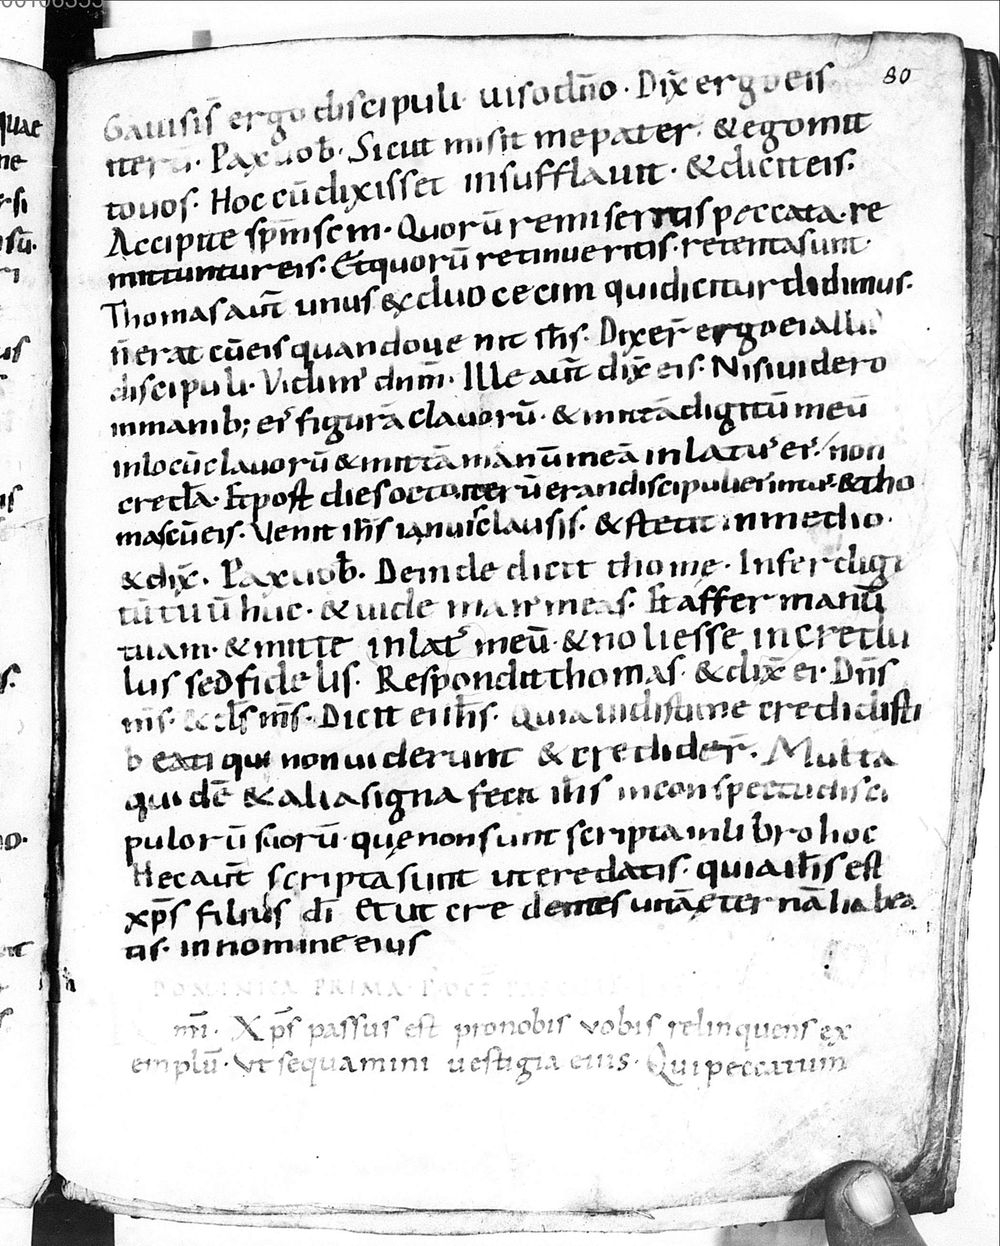 80
Gauisis̄ ergo discipuli uiso dn̄o. Dix̄ ergo eis
iterū. Pax uob̄. Sicut misit me pater. & ego mitt
to uos. Hoc cū dixisset insufflauit. & dicit eis.
Accipite sp̄m scm. Quorū remiseritis peccata. re
mittuntur eis. Et quorū retinueritis. retenta sunt.
Thomas aut̄ unus ex duocecim qui dicitur didimus.
n̄ erat cū eis quando ue nit ih̄s. Dixer̄ ergo ei alii
discipuli. Vidim' dnm̄. Ille aut̄ dix̄ eis. Nisi uidero
in manib; ei' figurā clauorū. & mittā digitū meū
in locū clauorū & mittā manū meā in latus ei' non
credā. Et post dies octo iterū erant discipuli ei' intus & tho
mas cū eis. Venit ih̄s ianuis clausis. & stetit in medio.
& dix̄. Pax uob̄. Deinde dicit thome. Infer digi
tū tuū huc. & uide man' meas. Et affer manū
tuam. & mitte in lat' meū. & noli esse incredu
lus sed fidelis. Respondit thomas. & dix̄ ei. Dn̄s
m̄s. & ds̄ m̄s. Dicit ei ih̄s. Quia uidisti me credidisti
beati qui non uiderunt & credider̄. Multa
quidē & alia signa fecit ih̄s in conspectu disci
pulorū suorū. que non sunt scripta in libro hoc
Hec aut̄ scripta sunt ut credatis. quia ih̄s est
xp̄s filius dī Et ut credentes uitā eternā habea
tis. in nomine eius
DOMINICA PRIMA P' OCT PASCHE
mī. Xp̄s passus est pro nobis vobis relinquens ex
emplū. Vt sequamini uestigia eius. Qui peccatum